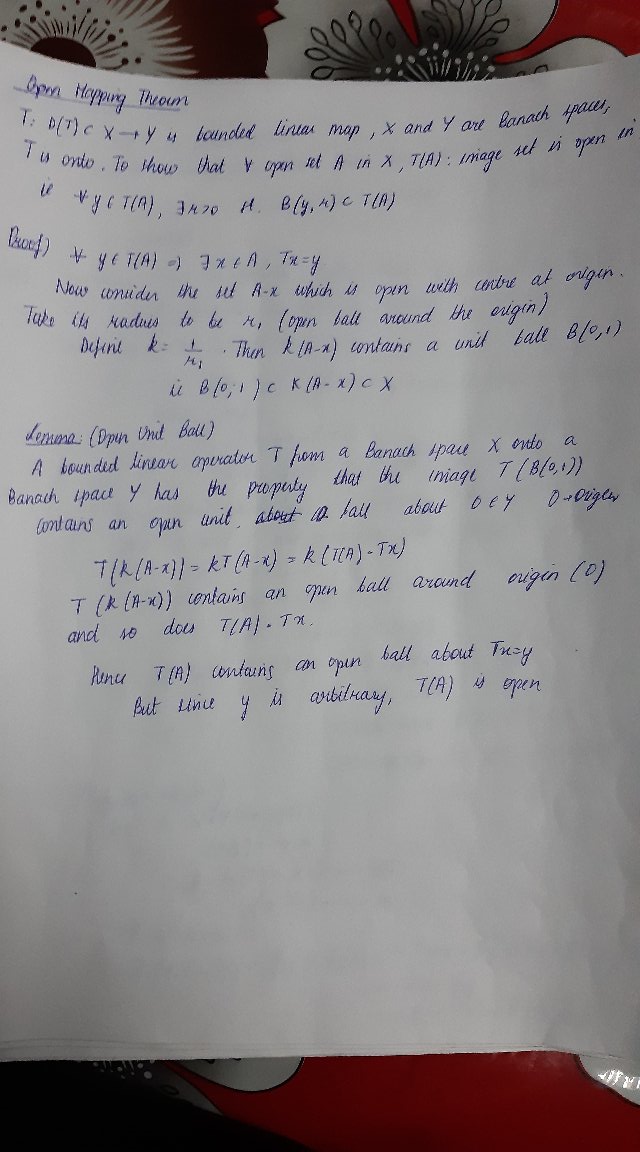 Open Mapping Theorem
T: D(T) ⊂ X → Y is bounded linear map, X and Y are Banach spaces,
T is onto. To show that ∀ open set A in X, T(A): image set is open in
ie ∀ y ∈ T(A), ∃ r>0 st. B(y, r) ⊂ T(A)
Proof) ∀ y ∈ T(A) ⇒ ∃ x ∈ A, Tx=y
Now consider the set A-x which is open with centre at origin.
Take its radius to be r₁ (open ball around the origin)
Define k = 1/r₁ . Then k(A-x) contains a unit ball B(0,1)
ie B(0,1) ⊂ K(A-x) ⊂ X
Lemma: (Open Unit Ball)
A bounded linear operator T from a Banach space X onto a
Banach space Y has the property that the image T(B(0,1))
contains an open unit ball about 0 ∈ Y 0→origin
T(k(A-x)) = kT(A-x) = k(T(A)-Tx)
T(k(A-x)) contains an open ball around origin (0)
and so does T(A)-Tx.
Hence T(A) contains an open ball about Tx=y
But since y is arbitrary, T(A) is open